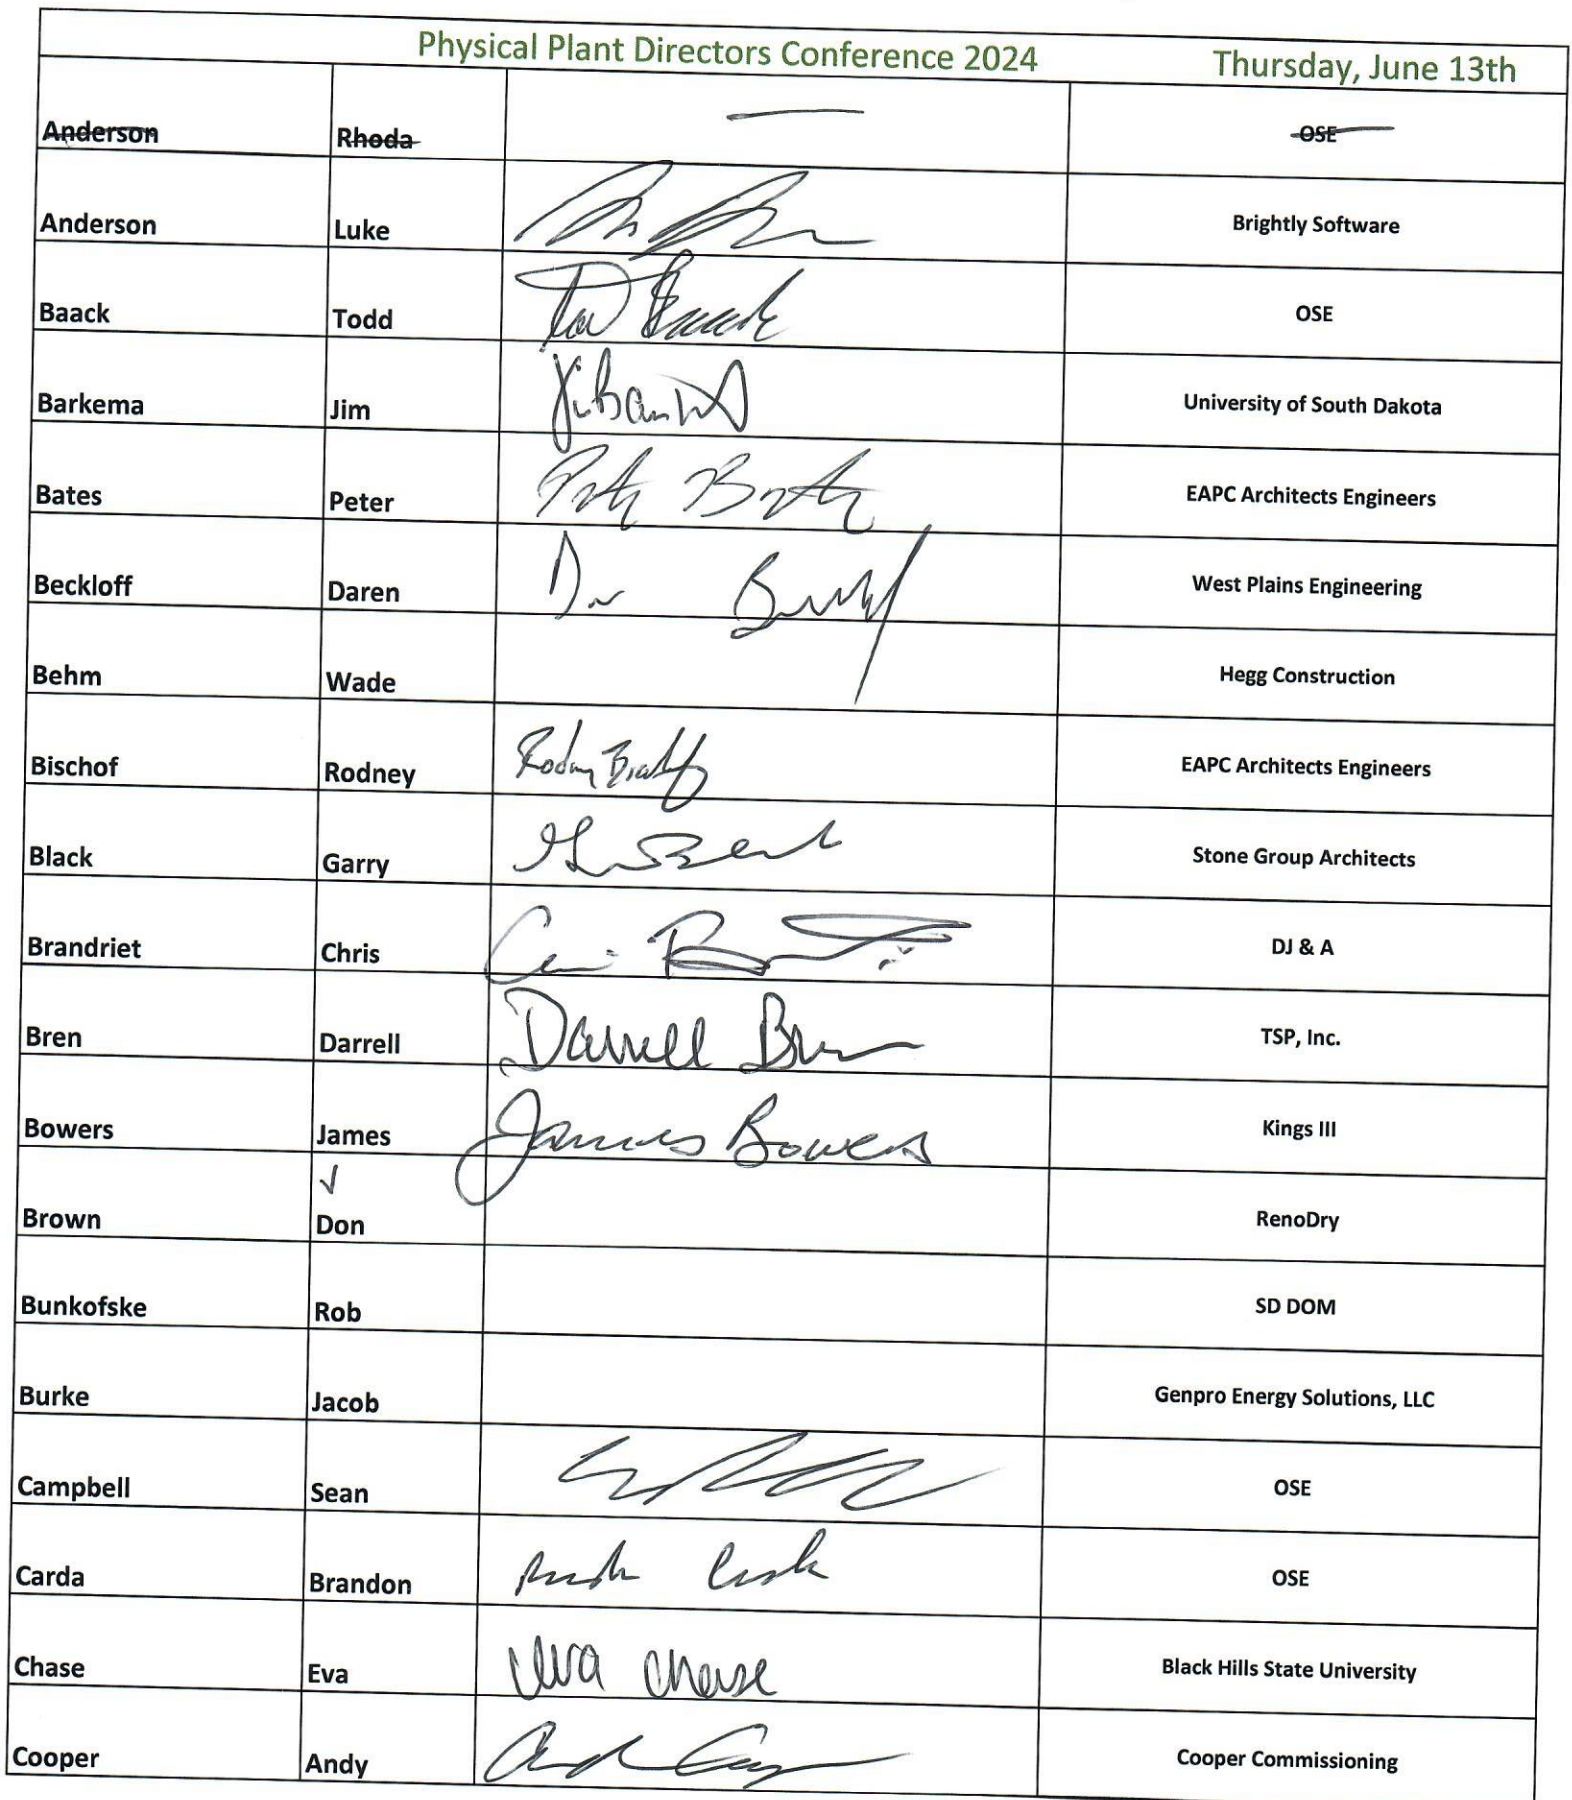 Physical Plant Directors Conference 2024 Thursday, June 13th
Anderson Rhoda — OSE
Anderson Luke Brightly Software
Baack Todd Tod Baack OSE
Barkema Jim University of South Dakota
Bates Peter EAPC Architects Engineers
Beckloff Daren West Plains Engineering
Behm Wade Hegg Construction
Bischof Rodney Rodney EAPC Architects Engineers
Black Garry Stone Group Architects
Brandriet Chris DJ & A
Bren Darrell Darrell Bren TSP, Inc.
Bowers James James Bowers Kings III
Brown ✓ Don RenoDry
Bunkofske Rob SD DOM
Burke Jacob Genpro Energy Solutions, LLC
Campbell Sean OSE
Carda Brandon OSE
Chase Eva Eva Chase Black Hills State University
Cooper Andy Cooper Commissioning